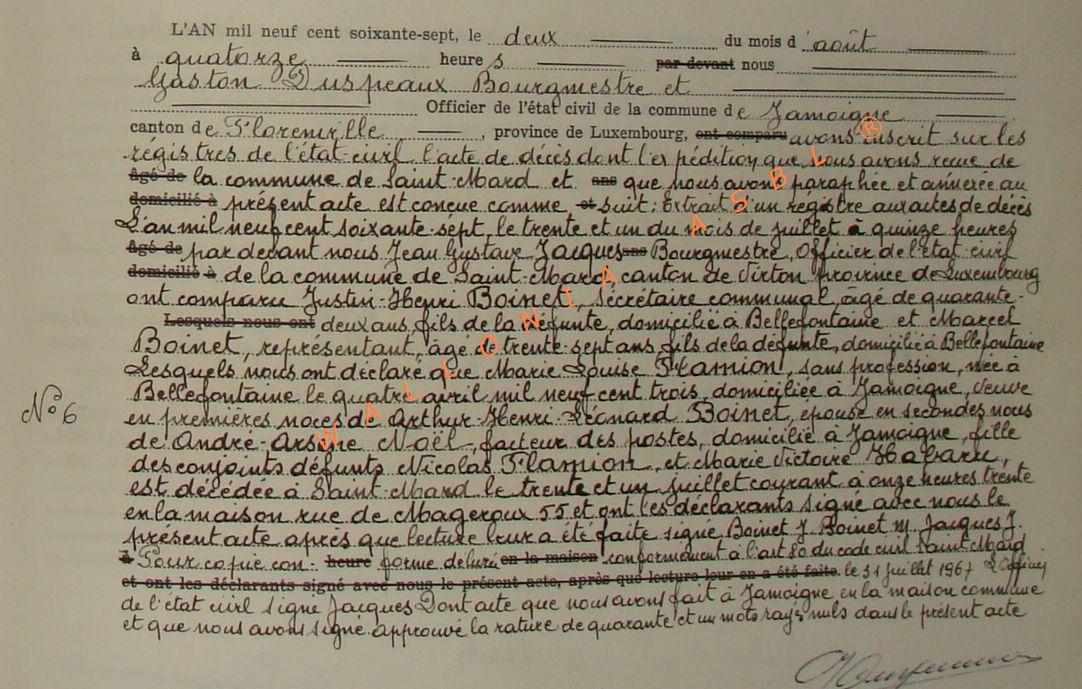 L'AN mil neuf cent soixante-sept, le deux du mois d'août
à quatorze heures par devant nous
Gaston Duspeaux Bourgmestre et
Officier de l'état civil de la commune de Jamoigne
canton de Florenville, province de Luxembourg, ont comparu avons inscrit sur les
registres de l'état-civil l'acte de décès dont l'expédition que nous avons reçue de
âgé de la commune de Saint-Mard et ans que nous avons paraphée et annexée au
domicilié à présent acte est conçue comme et suit: Extrait d'un registre aux actes de décès
L'an mil neuf cent soixante-sept, le trente et un du mois de juillet à quinze heures
âgé de par devant nous Jean Gustave Jacques ans Bourgmestre, Officier de l'état-civil
domicilié à de la commune de Saint-Mard, canton de Virton province de Luxembourg
ont comparu Justin-Henri Boinet, Secrétaire communal, âgé de quarante-
Lesquels nous ont deux ans, fils de la défunte, domicilié à Bellefontaine et Marcel
Boinet, représentant, âgé de trente-sept ans fils de la défunte, domicilié à Bellefontaine
Lesquels nous ont déclaré que Marie Louise Flamion, sans profession, née à
N° 6
Bellefontaine le quatre avril mil neuf cent trois, domiciliée à Jamoigne, veuve
en premières noces de Arthur-Henri-Léonard Boinet, épouse en secondes nous
de André-Arsène Noël, facteur des postes, domicilié à Jamoigne, fille
des conjoints défunts Nicolas Flamion, et Marie Victoire Habaru,
est décédée à Saint-Mard le trente et un juillet courant à onze heures trente
en la maison rue de Mageroux 55 et ont les déclarants signé avec nous le
présent acte après que lecture leur a été faite signé Boinet J. Boinet M. Jacques J.
à Pour copie con- heure forme délivré en la maison conformément à l'art 80 du code civil Saint-Mard
et ont les déclarants signé avec nous le présent acte, après que lecture leur en a été faite. le 31 juillet 1967 L'Officier
de l'état civil signé Jacques Dont acte que nous avons fait à Jamoigne en la maison commune
et que nous avons signé. approuvé la rature de quarante et un mots rayés nuls dans le présent acte
WALLONIA ASBL ®